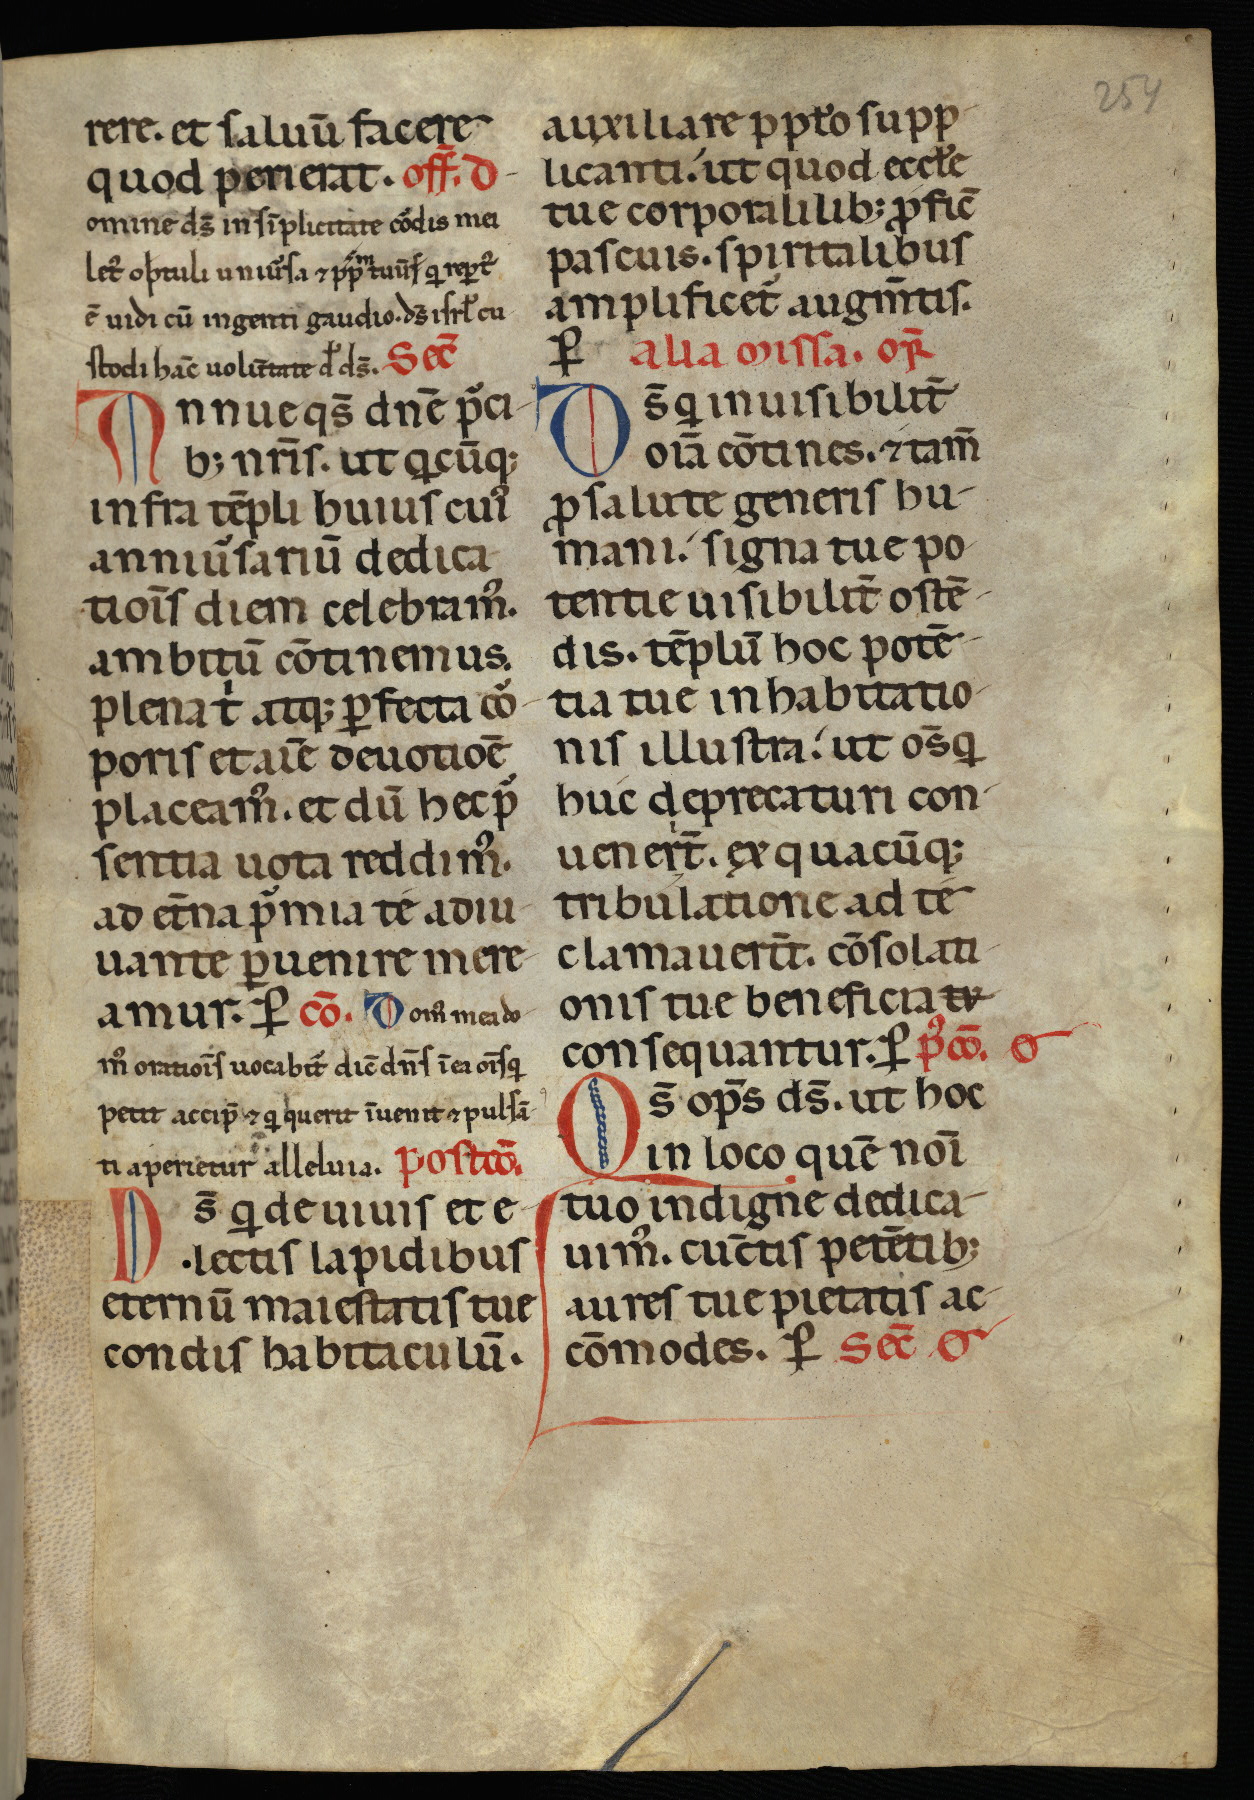 254
rere. et saluū facere
quod perierat. off̄. D
omine ds̄ in sīplicitate cordis mei
let᷒ optuli uniuersa ⁊ pp̄lm tuū q̇ repert᷒
ē uidi cū ingenti gaudio. ds̄ isrl̄ cu
stodi hāc uolūtatē d̄ ds̄. Sec̄
Annue qs̄ dn̄e p̄ci
b; nr̄is. ut q̇cūq;
infra tēpli huius cui᷒
anniūsariū dedica
tiōis diem celebram᷒.
ambitū cōtinemus.
plena t̄ atq; ꝑfecta cor
poris et aīe deuotiōe
placeam᷒. et dū hec p̄
sentia uota reddim᷒.
ad et̄na p̄mia te adiu
uante ꝑuenire mere
amur. ꝑ cō. Dom᷒ mea do
m᷒ oratiōis uocabit᷒ dic̄ dn̄s ī ea oīs q̇
petit accip̄ ⁊ q̇ querit īuenit ⁊ pulsā
ti aperietur alleluia. postcō.
Ds̄ q̇ de uiuis et e
lectis lapidibus
eternū maiestatis tue
condis habitaculū.
auxiliare pp̄lo supp
licanti. ut quod eccl̄e
tue corporalilib; ꝓfic̄
pascuis. spiritalibus
amplificet᷒ augm̄tis.
ꝑ alia missa. or̄
Ds̄ q̇ inuisibilit̄
oīa cōtines. ⁊ tam̄
ꝓ salute generis hu
mani. signa tue po
tentie uisibilit̄ ostē
dis. tēplū hoc potē
tia tue inhabitatio
nis illustra. ut oēs q̇
huc deprecaturi con
uenerīt. ex quacūq;
tribulatione ad te
clamauerīt. cōsolati
onis tue beneficia
consequantur. ꝑ p᷒cō. O
Os̄ ops̄ ds̄. ut hoc
in loco quē noī
tuo indigne dedica
uim᷒. cūctis petētib;
aures tue pietatis ac
cōmodes. ꝑ Sec̄ O